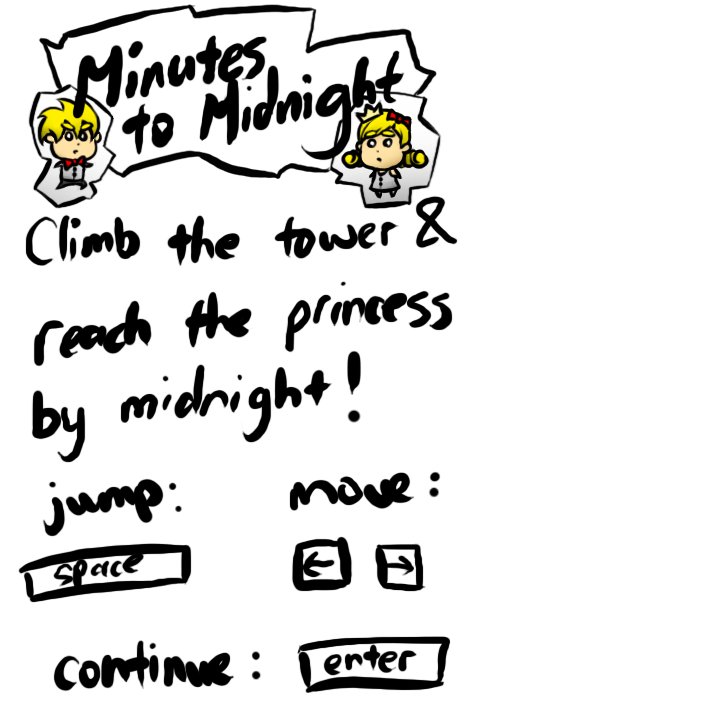 Minutes
to Midnight
Climb the tower &
reach the princess
by midnight!
jump: move:
space ← →
continue: enter